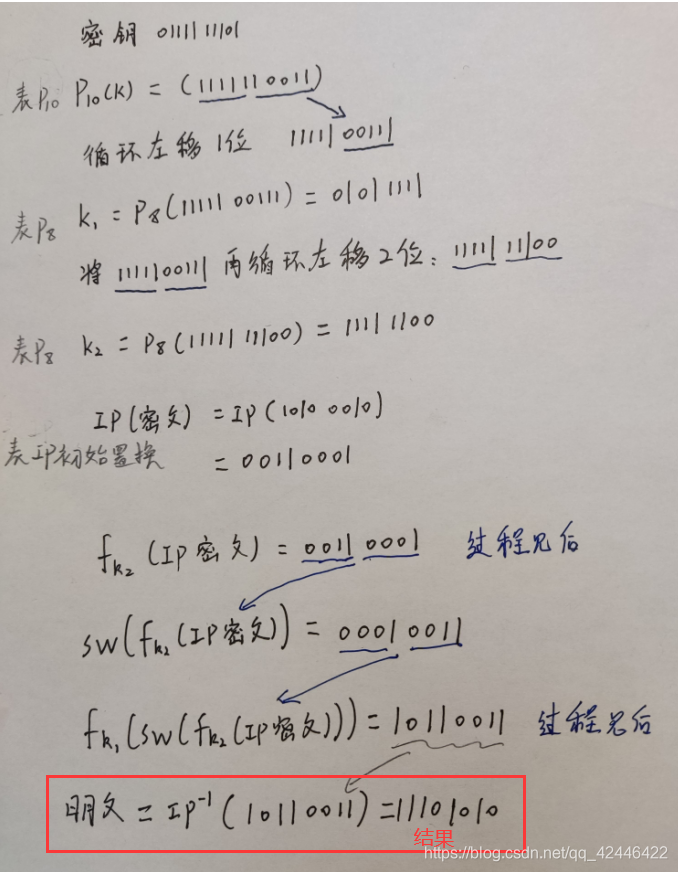 密钥 0111111101
表P10 P10(K) = (1111110011)
循环左移1位 1111100111
表P8 k1 = P8(11111 00111) = 01011111
将 1111100111 再循环左移2位: 11111 11100
表P8 k2 = P8(11111 11100) = 11111100
IP(密文) = IP(1010 0010)
表IP初始置换 = 00110001
fk2(IP密文) = 0011 0001 过程见后
SW(fk2(IP密文)) = 0001 0011
fk1(SW(fk2(IP密文))) = 10110011 过程见后
明文 = IP⁻¹(10110011) = 11101010
结果
https://blog.csdn.net/qq_42446422